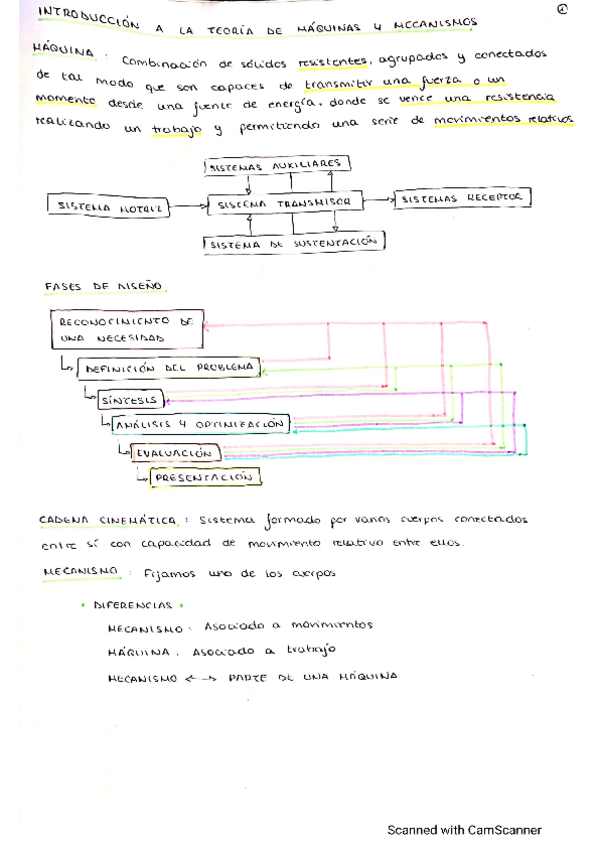 INTRODUCCIÓN A LA TEORÍA DE MÁQUINAS Y MECANISMOS
1
MÁQUINA : Combinación de sólidos resistentes, agrupados y conectados
de tal modo que son capaces de transmitir una fuerza o un
momento desde una fuente de energía, donde se vence una resistencia
realizando un trabajo y permitiendo una serie de movimientos relativos
SISTEMAS AUXILIARES
SISTEMA MOTRIZ
SISTEMA TRANSMISOR
SISTEMAS RECEPTOR
SISTEMA DE SUSTENTACIÓN
FASES DE DISEÑO
RECONOCIMIENTO DE
UNA NECESIDAD
DEFINICIÓN DEL PROBLEMA
SÍNTESIS
ANÁLISIS Y OPTIMIZACIÓN
EVALUACIÓN
PRESENTACIÓN
CADENA CINEMÁTICA : Sistema formado por varios cuerpos conectados
entre sí con capacidad de movimiento relativo entre ellos.
MECANISMO : Fijamos uno de los cuerpos
• DIFERENCIAS •
MECANISMO : Asociado a movimientos
MÁQUINA : Asociado a trabajo
MECANISMO <--> PARTE DE UNA MÁQUINA
Scanned with CamScanner